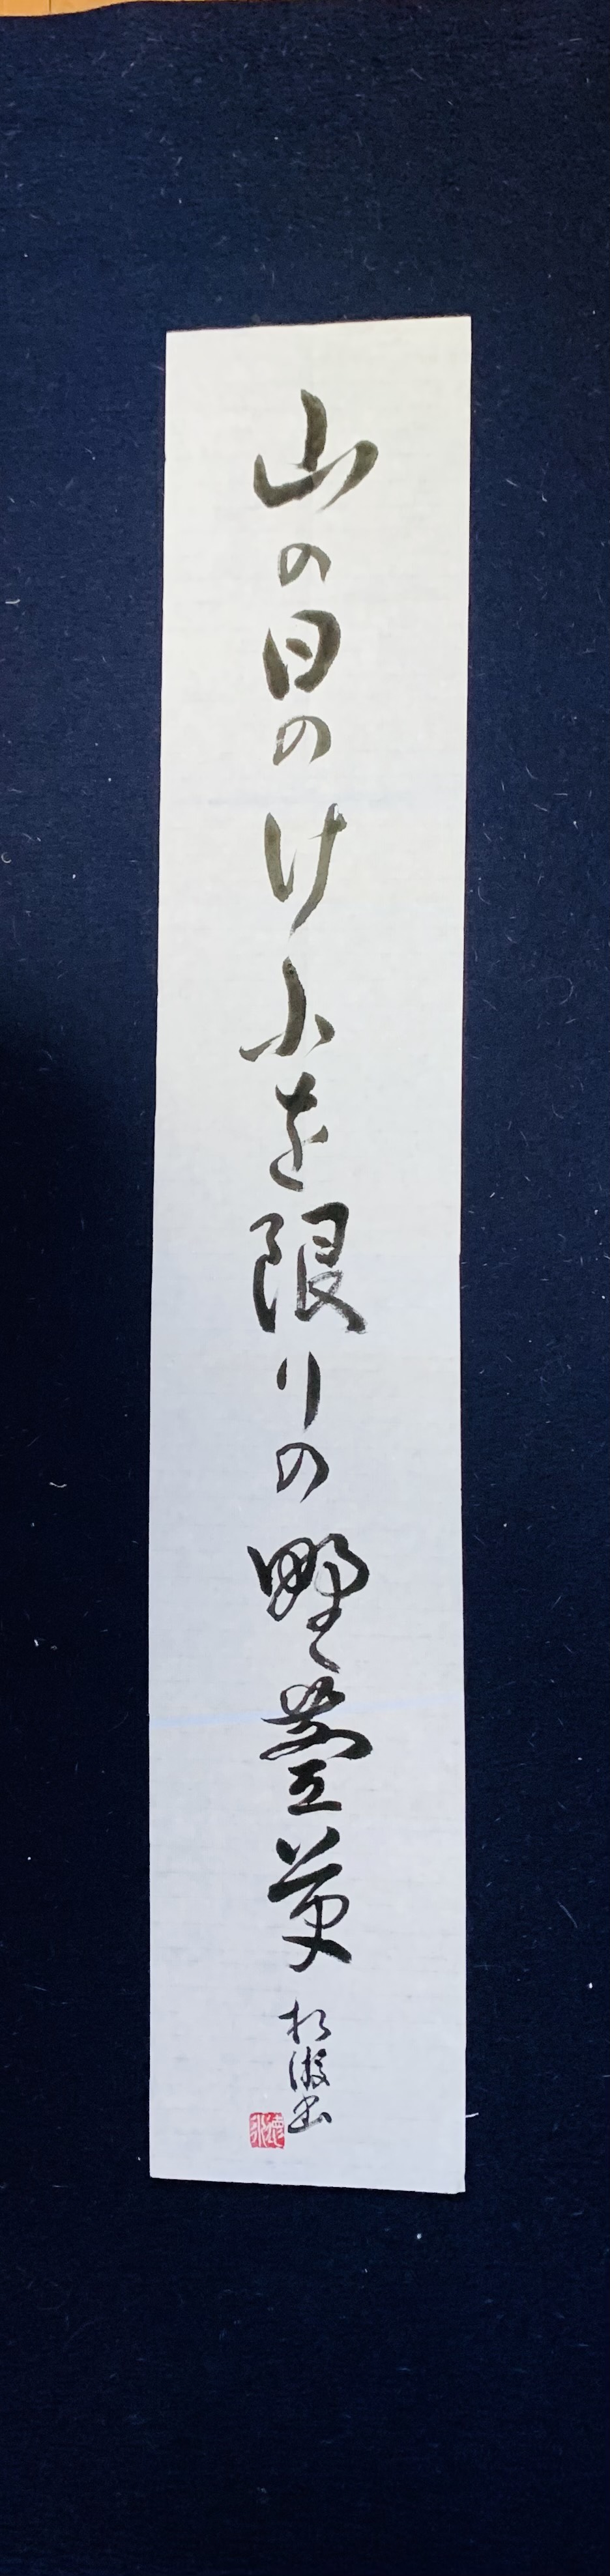 山の日のけふを限りの野萱草